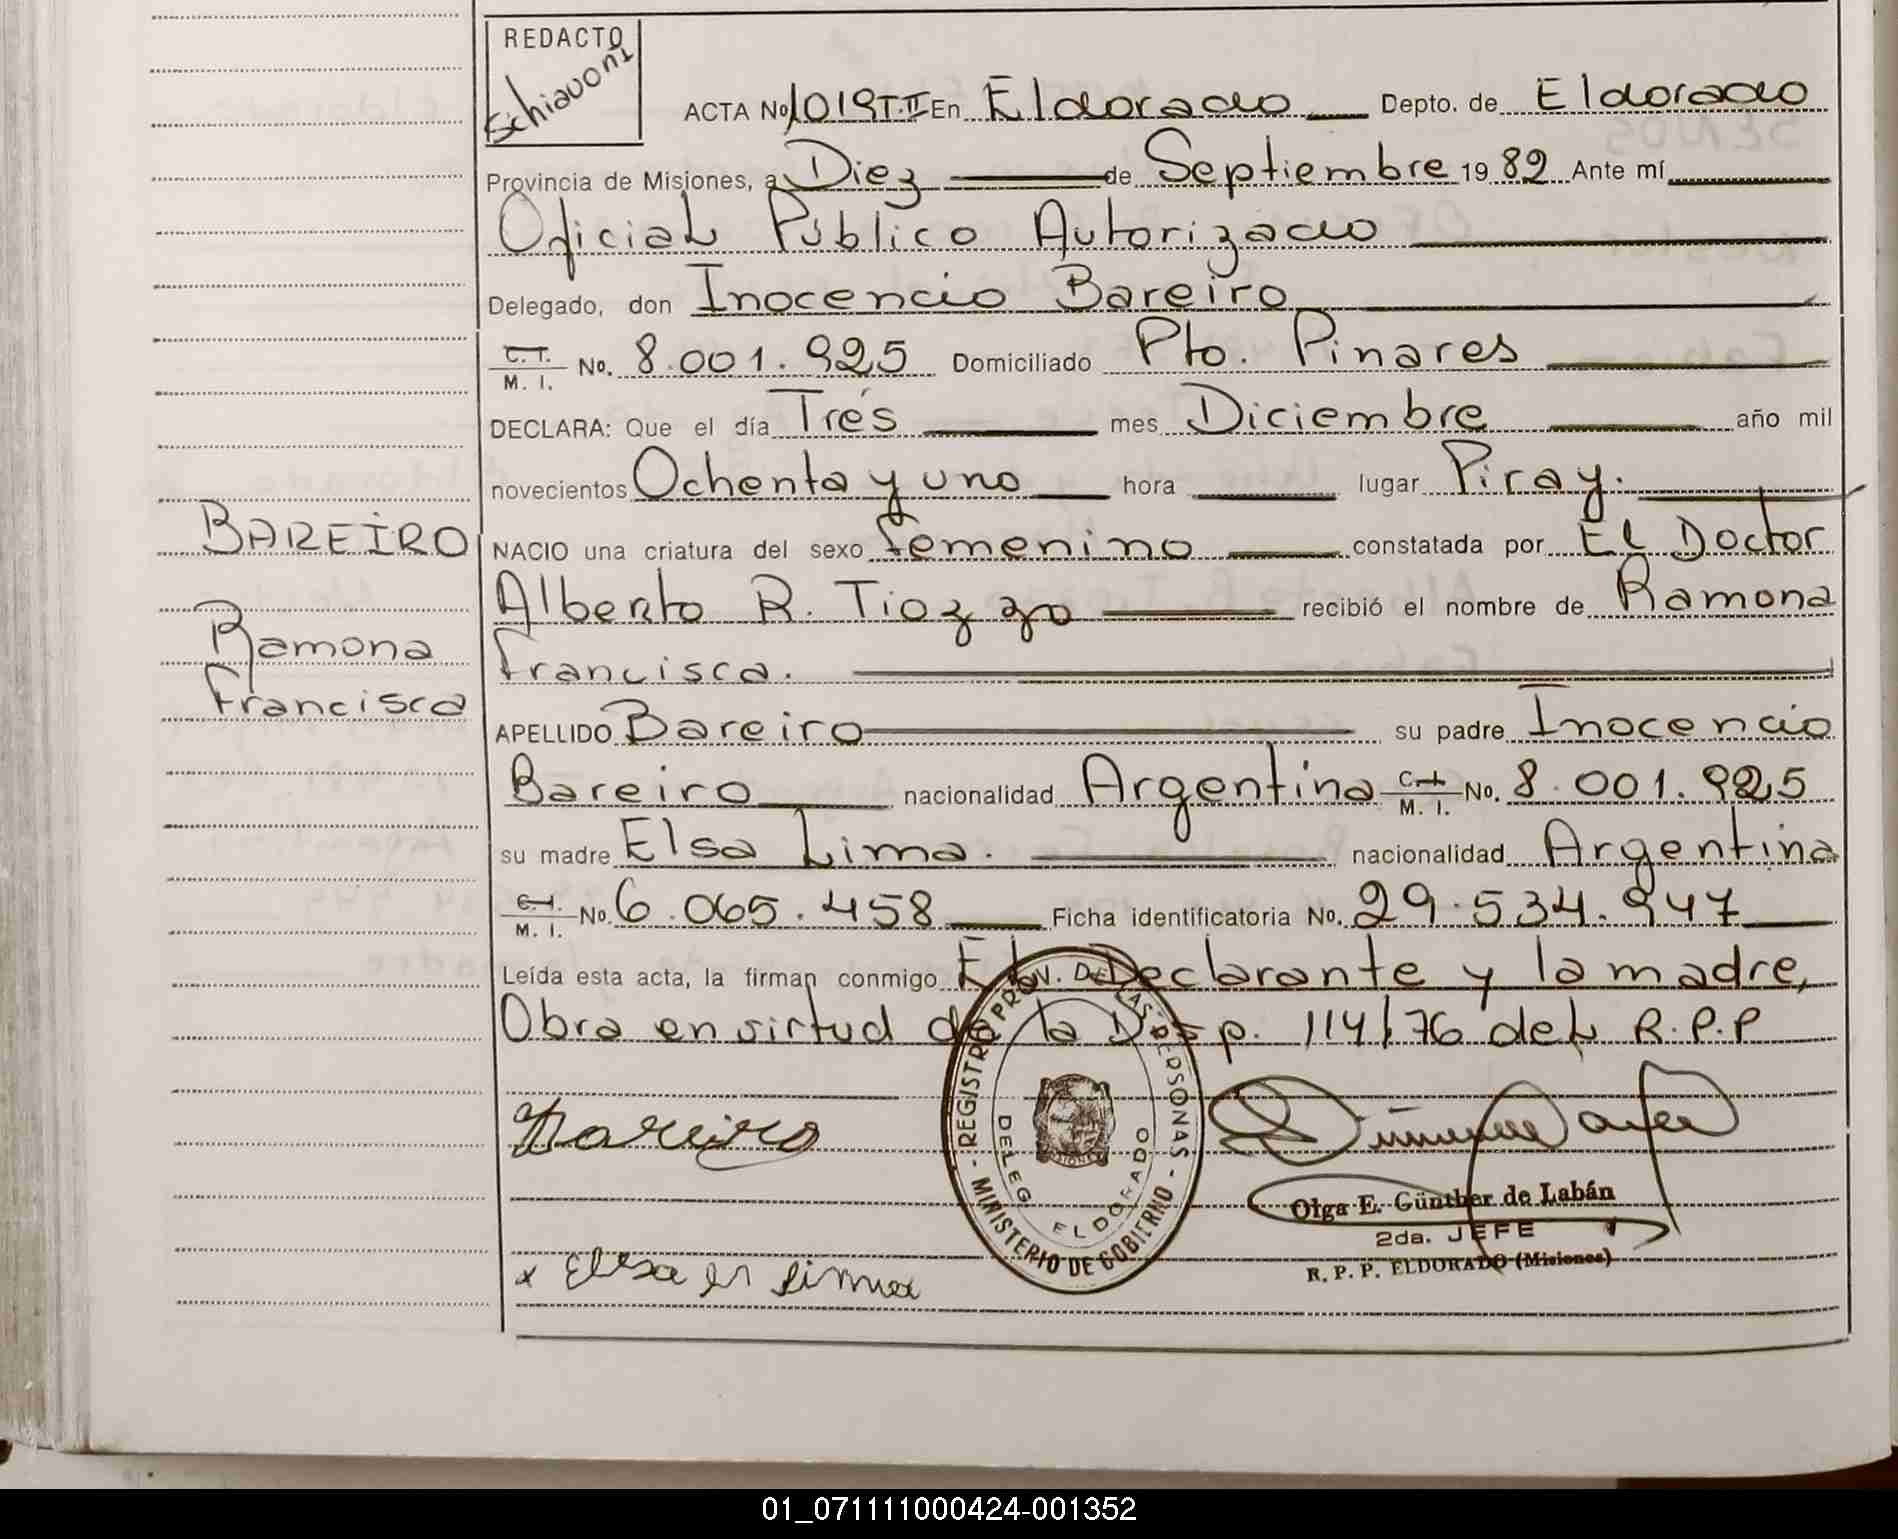 REDACTO
Schiavoni
ACTA No 1019 T.II En Eldorado Depto. de Eldorado
Provincia de Misiones, a Diez de Septiembre 19 82 Ante mí
Oficial Público Autorizado
Delegado, don Inocencio Bareiro
C. T. M. I. No. 8.001.925 Domiciliado Pto. Pinares
DECLARA: Que el día Trés mes Diciembre año mil
novecientos Ochenta y uno hora lugar Piray.
BAREIRO
NACIO una criatura del sexo femenino constatada por El Doctor
Alberto R. Tiozzo recibió el nombre de Ramona
Ramona
Francisca.
Francisca
APELLIDO Bareiro su padre Inocencio
Bareiro nacionalidad Argentina C.I. M. I. No. 8.001.925
su madre Elsa Lima. nacionalidad Argentina
C.I. M. I. No. 6.065.458 Ficha identificatoria No. 29.534.947
Leída esta acta, la firman conmigo El Declarante y la madre,
Obra en virtud de la Disp. 114/76 del R.P.P
Bareiro
REGISTRO PROV. DE LAS PERSONAS - MINISTERIO DE GOBIERNO -
DELEG. ELDORADO
MISIONES
Olga E. Günther de Labán
2da. JEFE
R. P. P. ELDORADO (Misiones)
x Elsa
01_071111000424-001352